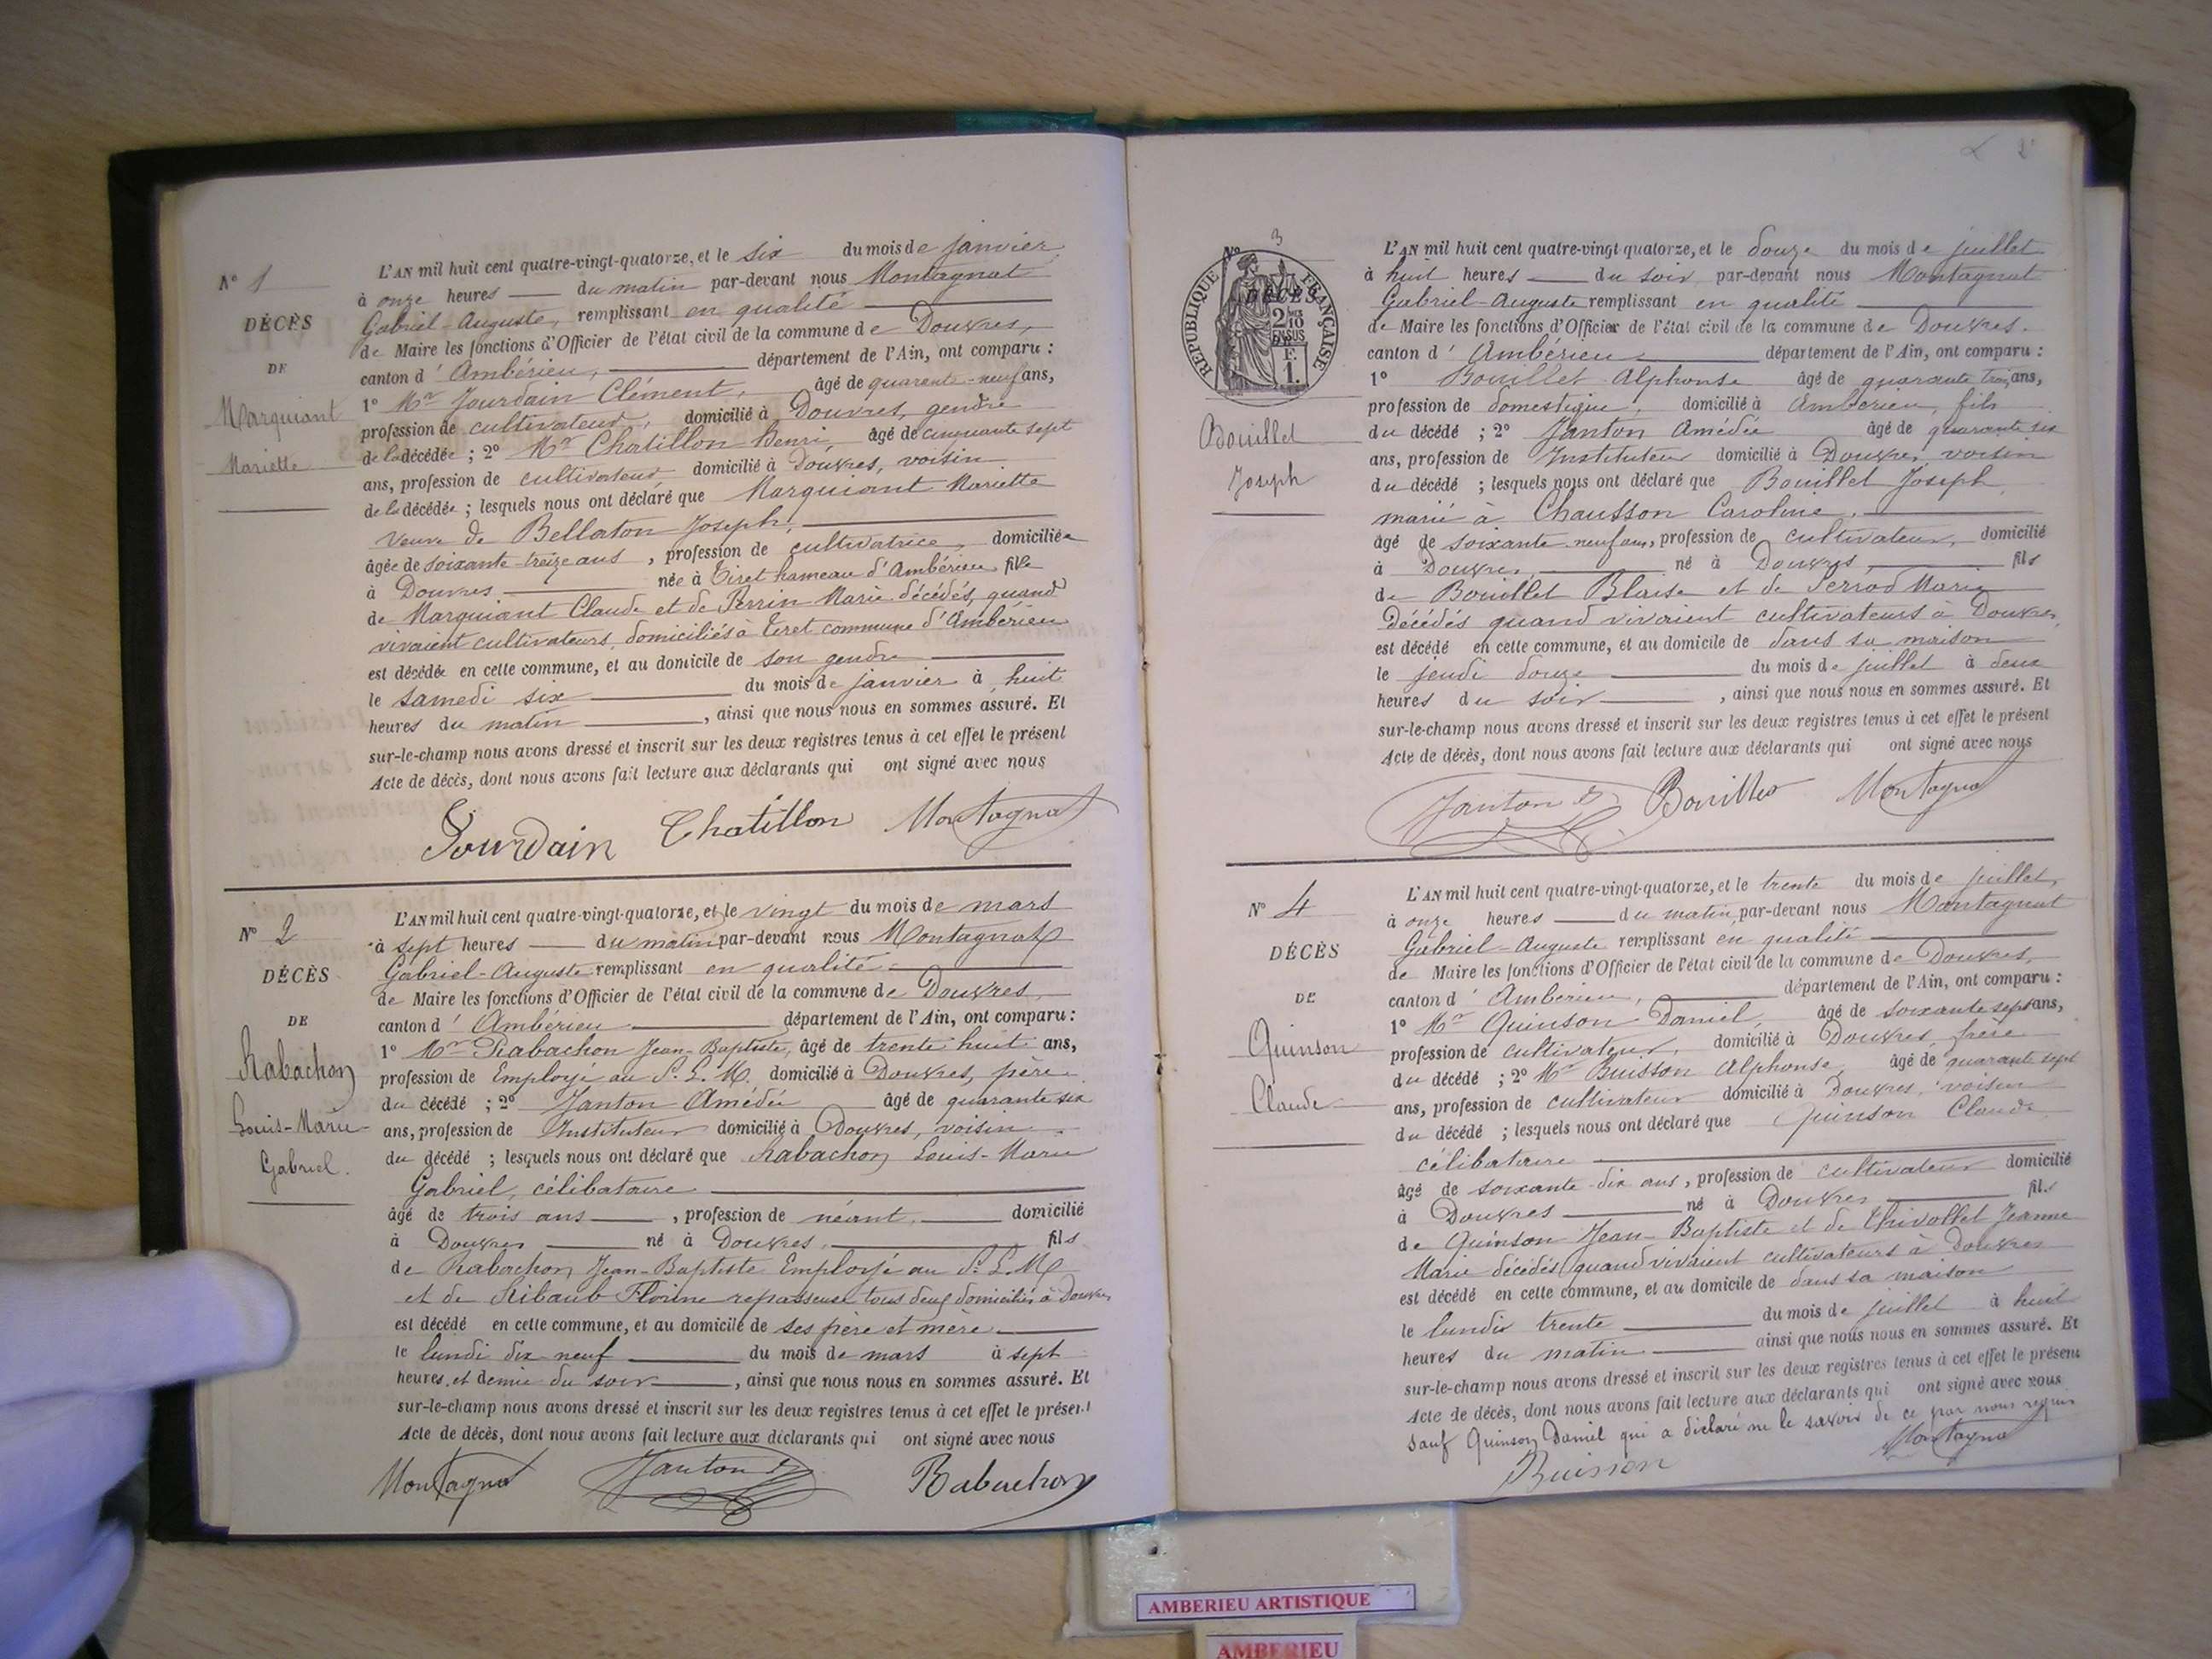 N° 1
DÉCÈS
DE
Marquiant
Mariette
L'AN mil huit cent quatre-vingt-quatorze, et le six du mois de janvier
à onze heures du matin par-devant nous Montagnat
Gabriel-Auguste, remplissant en qualité
de Maire les fonctions d'Officier de l'état civil de la commune de Douvres,
canton d'Ambérieu, département de l'Ain, ont comparu :
1° Mr Jourdain Clément, âgé de quarante-neuf ans,
profession de cultivateur, domicilié à Douvres, gendre
de la décédée ; 2° Mr Chatillon Henri, âgé de cinquante sept
ans, profession de cultivateur domicilié à Douvres, voisin
de la décédée ; lesquels nous ont déclaré que Marquiant Mariette
veuve de Bellaton Joseph,
âgée de soixante-treize ans, profession de cultivatrice, domiciliée
à Douvres née à Tiret hameau d'Ambérieu fille
de Marquiant Claude et de Perrin Marie décédés, quand
vivaient cultivateurs, domiciliés à Tiret commune d'Ambérieu
est décédée en cette commune, et au domicile de son gendre
le samedi six du mois de janvier à huit
heures du matin, ainsi que nous nous en sommes assuré. Et
sur-le-champ nous avons dressé et inscrit sur les deux registres tenus à cet effet le présent
Acte de décès, dont nous avons fait lecture aux déclarants qui ont signé avec nous
Jourdain Chatillon Montagnat
N° 2
DÉCÈS
DE
Rabachon
Louis-Marie
Gabriel.
L'AN mil huit cent quatre-vingt-quatorze, et le vingt du mois de mars
à sept heures du matin par-devant nous Montagnat
Gabriel-Auguste remplissant en qualité
de Maire les fonctions d'Officier de l'état civil de la commune de Douvres
canton d'Ambérieu département de l'Ain, ont comparu :
1° Mr Rabachon Jean-Baptiste, âgé de trente huit ans,
profession de Employé au P. L. M. domicilié à Douvres, père
du décédé ; 2° Janton Amédée âgé de quarante six
ans, profession de Instituteur domicilié à Douvres, voisin
du décédé ; lesquels nous ont déclaré que Rabachon Louis-Marie
Gabriel, célibataire
âgé de trois ans, profession de néant, domicilié
à Douvres né à Douvres, fils
de Rabachon Jean-Baptiste Employé au P. L. M
et de Ribaub Florine repasseuse tous deux domiciliés à Douvres
est décédé en cette commune, et au domicile de ses père et mère
le lundi dix neuf du mois de mars à sept
heures et demie du soir, ainsi que nous nous en sommes assuré. Et
sur-le-champ nous avons dressé et inscrit sur les deux registres tenus à cet effet le présent
Acte de décès, dont nous avons fait lecture aux déclarants qui ont signé avec nous
Montagnat Janton Rabachon
2
N° 3
RÉPUBLIQUE FRANÇAISE
DÉCÈS
2/10 EN SUS
F. 1.
Bouillet
Joseph
L'AN mil huit cent quatre-vingt quatorze, et le douze du mois de juillet
à huit heures du soir par-devant nous Montagnat
Gabriel-Auguste remplissant en qualité
de Maire les fonctions d'Officier de l'état civil de la commune de Douvres.
canton d'Ambérieu département de l'Ain, ont comparu :
1° Bouillet Alphonse âgé de quarante trois ans,
profession de domestique, domicilié à Ambérieu, fils
du décédé ; 2° Janton Amédée âgé de quarante six
ans, profession de Instituteur domicilié à Douvres voisin
du décédé ; lesquels nous ont déclaré que Bouillet Joseph
marié à Chausson Caroline,
âgé de soixante-neuf ans, profession de cultivateur, domicilié
à Douvres, né à Douvres fils
de Bouillet Blaise et de Perrod Marie
décédés quand vivaient cultivateurs à Douvres,
est décédé en cette commune, et au domicile de dans sa maison
le jeudi douze du mois de juillet à deux
heures du soir, ainsi que nous nous en sommes assuré. Et
sur-le-champ nous avons dressé et inscrit sur les deux registres tenus à cet effet le présent
Acte de décès, dont nous avons fait lecture aux déclarants qui ont signé avec nous
Janton Bouillet Montagnat
N° 4
DÉCÈS
DE
Quinson
Claude
L'AN mil huit cent quatre-vingt-quatorze, et le trente du mois de juillet,
à onze heures du matin par-devant nous Montagnat
Gabriel-Auguste remplissant en qualité
de Maire les fonctions d'Officier de l'état civil de la commune de Douvres,
canton d'Ambérieu, département de l'Ain, ont comparu :
1° Mr Quinson Daniel, âgé de soixante sept ans,
profession de cultivateur, domicilié à Douvres, frère
du décédé ; 2° Mr Buisson Alphonse, âgé de quarante sept
ans, profession de cultivateur domicilié à Douvres, voisin
du décédé ; lesquels nous ont déclaré que Quinson Claude
célibataire
âgé de soixante-dix ans, profession de cultivateur domicilié
à Douvres né à Douvres fils
de Quinson Jean-Baptiste et de Thivollet Jeanne
Marie décédés quand vivaient cultivateurs à Douvres
est décédé en cette commune, et au domicile de dans sa maison
le lundi trente du mois de juillet à huit
heures du matin ainsi que nous nous en sommes assuré. Et
sur-le-champ nous avons dressé et inscrit sur les deux registres tenus à cet effet le présent
Acte de décès, dont nous avons fait lecture aux déclarants qui ont signé avec nous
sauf Quinson Daniel qui a déclaré ne le savoir de ce par nous requis
Buisson Montagnat
AMBERIEU ARTISTIQUE
AMBERIEU